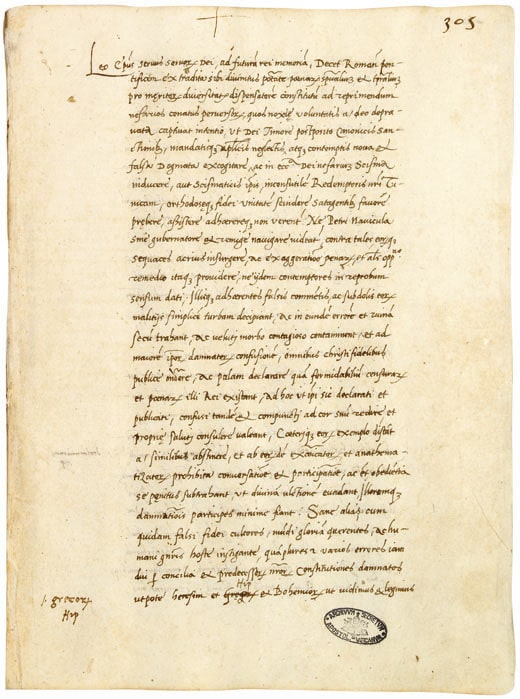 305
Leo Epus seruus seruor Dei, ad futura rei memoria, Decet Romanu pon-
tificem ex tradita sibi divinitus potate poenar spualiu et tpraliu
pro meritor diversitate dispensatore constitutu ad reprimendum
nefarios conatus perversor, quos noxie voluntatis adeo depra-
vata captiuat intentio, ut Dei timore postposito Canonicis San-
ctionibz, mandatisqz aplicis neglectis, atqz contemptis nova et
falsa Dogmata excogitare, ac in eccā Dei nefarium Scisma
inducere, aut Scismaticis ipis, inconsutile Redemptoris nri Tu-
nicam, orthodoxeqz fidei unitate scindere satagentibz favore
prebere, assistere adhaerereqz non verent Ne Petri Navicula
sine gubernatore et remige navigare videat, contra tales eorqz
sequaces acrius insurgere, ac exaggeratione penar, et alis oppno
remedio itaqz providere, ne ijdem contemptores in reprobum
sensum dati, Illisqz adhaerentes falsis commetis, ac subdolis eor
malitijs simplice turbam decipiant, ac in eunde errore et ruina
secu trahant, ac veluti morbo contagioso contaminent, et ad
maiore ipor damnator confusione, omnibus christi fidelibus
publice, ac palam declarare qua formidabiliu censurar
et poenar illi Rei existant, Ad hoc ut ipi sic declarati et
publicati, confusi tande et compuncti ad cor suu redire et
proprie saluti consulere valeant, Coeteriqz eor exemplo discat
a similibus abstinere, et ab eor de et anathema-
tizator prohibita conversatione et participatione, ac et obedientia
se penitus subtrahant ut divina ultione evadant Illoremqz
damnationis participes minime fiant: Sane alias cum
quidam falsi fidei cultores, mudi gloria querentes, ac hu-
mani gnris hoste instigante, quaplures et varios errores iam
du p concilia et predecessor nror Constitutiones damnatos
Hip
utpote heresim et gregor et Bohemior, ut vidimus et legimus
gregor
Hip
ARCHIVVM SECRETVM APOSTOL. VATICANVM